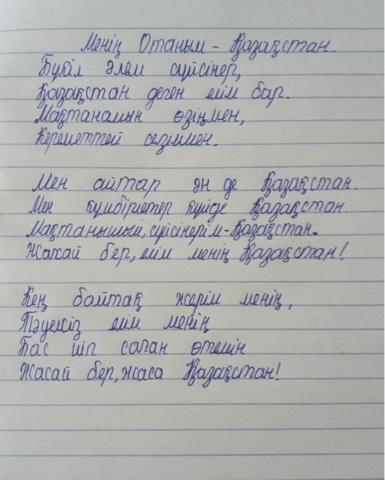 Менің Отаным - Қазақстан.
Бүкіл әлем сүйсінер,
Қазақстан деген елім бар.
Мақтанамын өзіңмен,
Кереметтей сезіммен.
Мен айтар ән де Қазақстан.
Мен күмбірлетер күйде Қазақстан.
Мақтанышым, сүйсінерім-Қазақстан.
Жасай бер, елім менің Қазақстан!
Кең байтақ жерім менің,
Тәуелсіз елім менің
Бас иіп саған өтемін
Жасай бер, жаса Қазақстан!